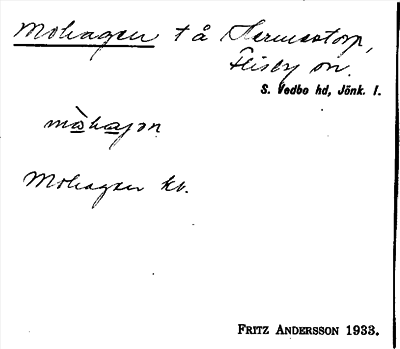 Mohagen t å Hermestorp,
Flisby sn.
S. Vedbo hd, Jönk. l.
mòhagən
Mohagen kb.
FRITZ ANDERSSON 1933.